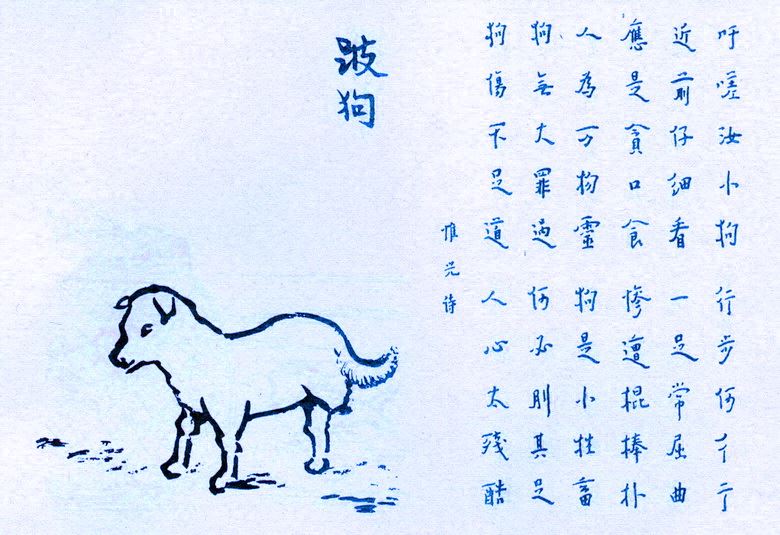 跛狗
吁嗟汝小狗 行步何彳亍
近前仔细看 一足常屈曲
應是貪口食 慘遭棍棒扑
人為万物靈 狗是小牲畜
狗無大罪過 何必刖其足
狗傷不足道 人心太残酷
惟光诗